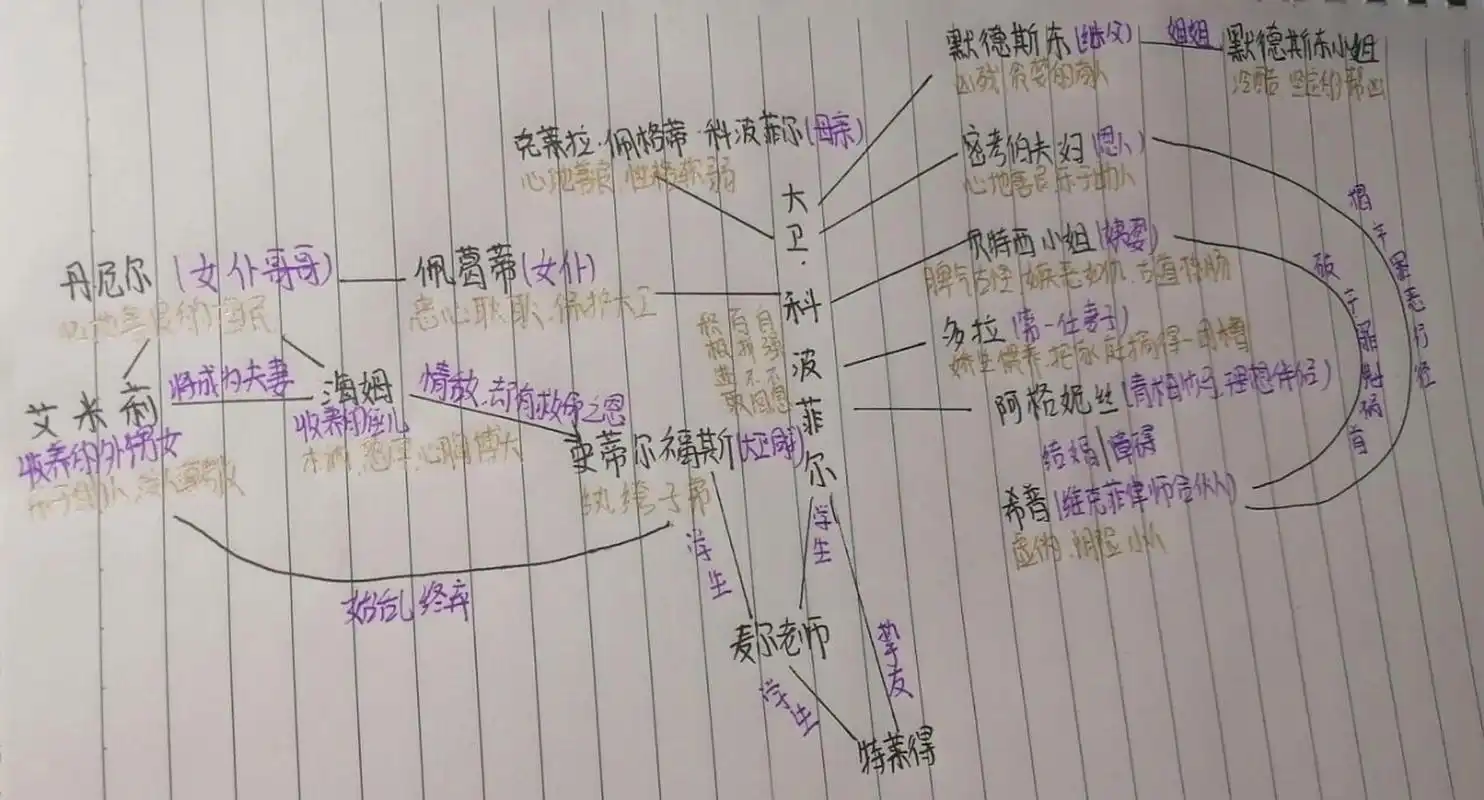 默德斯东(继父)
姐姐
默德斯东小姐
凶残 贪婪的商人
冷酷 坚定的帮凶
克莱拉·佩格蒂·科波菲尔(母亲)
心地善良 性格软弱
密考伯夫妇(恩人)
心地善良乐于助人
大卫·科波菲尔
积极进取
百折不回
自强不息
贝特西小姐(姨婆)
脾气古怪 嫉恶如仇
丹尼尔(女仆哥哥)
心地善良的渔民
佩葛蒂(女仆)
悉心耿耿、保护大卫
多拉(第一任妻子)
娇生惯养 把家庭搞得一团糟
阿格妮丝(青梅竹马、理想伴侣)
结婚障碍
希普(维克菲律师合伙人)
虚伪、阴险小人
揭字罪恶行径
破字罪魁祸首
艾米莉
将成为夫妻
海姆
收养的外甥女
收养的侄儿
心胸博大
情敌、却有救命之恩
史蒂尔福斯(大卫同学)
纨绔子弟
始乱终弃
学生
学生
麦尔老师
学生
挚友
特莱得